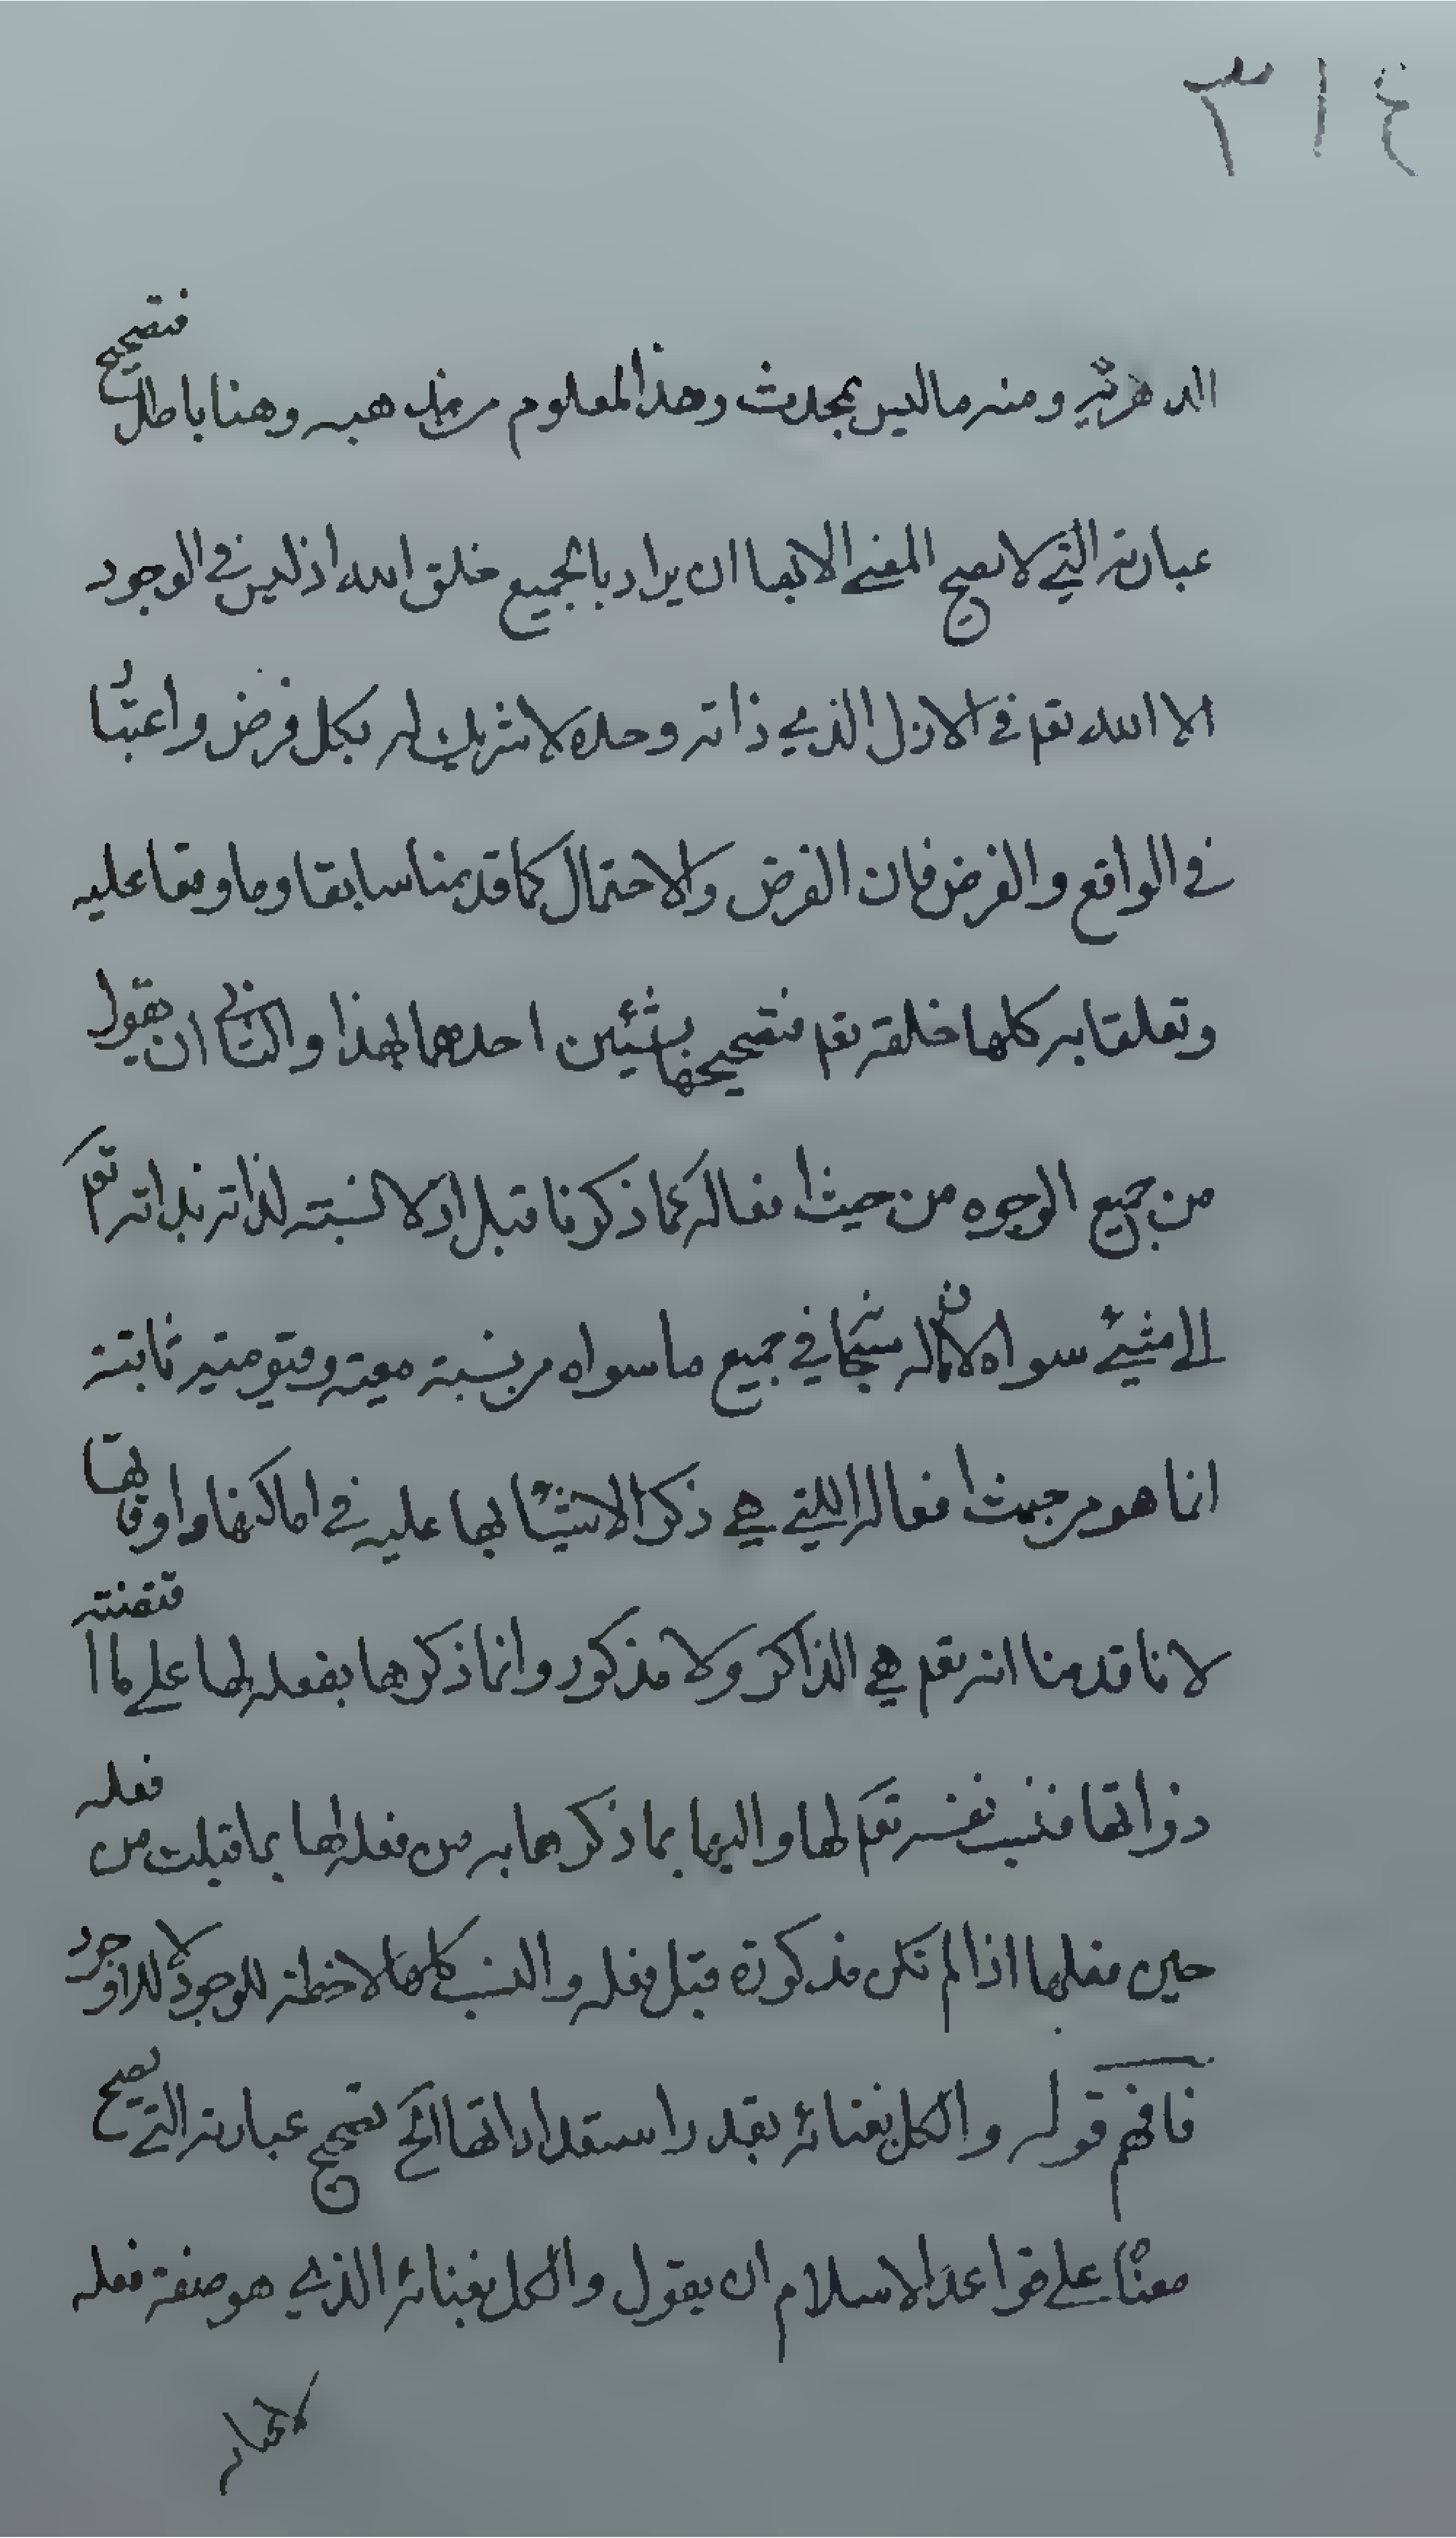 ٣١٤
الدهرية ومنه ما ليس بمحدث وهذا لمعلوم من مذهبه وهنا باطل فتصحيح
عبارته التي لا يصح المعنى الا بها ان يراد بالجميع خلق الله اذ ليس في الوجود
الا الله تعم في الازل الذي ذاته وحده لا شريك له بكل فرض واعتبار
في الواقع والفرض فان الفرض والاحتمال كما قدمنا سابقا وما وقعا عليه
وتعلقا به كلها خلقه تعم فتصحيحها بشيئين احدهما لهذا والثاني ان يقول
من جميع الوجوه من حيث افعاله كما ذكرنا قبل اذ لا نسبته لذاته بذاته تعم
الى شيئ سواه لان ماله في جميع ما سواه من نسبة معية وقيومية ثابتة
انما هو من حيث افعاله اللتي هي ذكر الاشيا بها عليه في اماكنها واوقاتها
لانا قدمنا انه تعم هي الذاكر ولا مذكور وانما ذكرها بفعله لها على ما اقتضته
ذواتها فنسب نفسه تعم لها واليها بما ذكرها به من فعله لها بما قبلت من فعله
حين فعلها اذا لم تكن مذكورة قبل فعله والنسب كلها لاحظة للوجود لا للواجود
فافهم قوله والكل بغنائه بقدر استعداداتها الخ تصحيح عبارته التي يصح
معناه على قواعد الاسلام ان يقول والكل بغنائه الذي هو صفة فعله